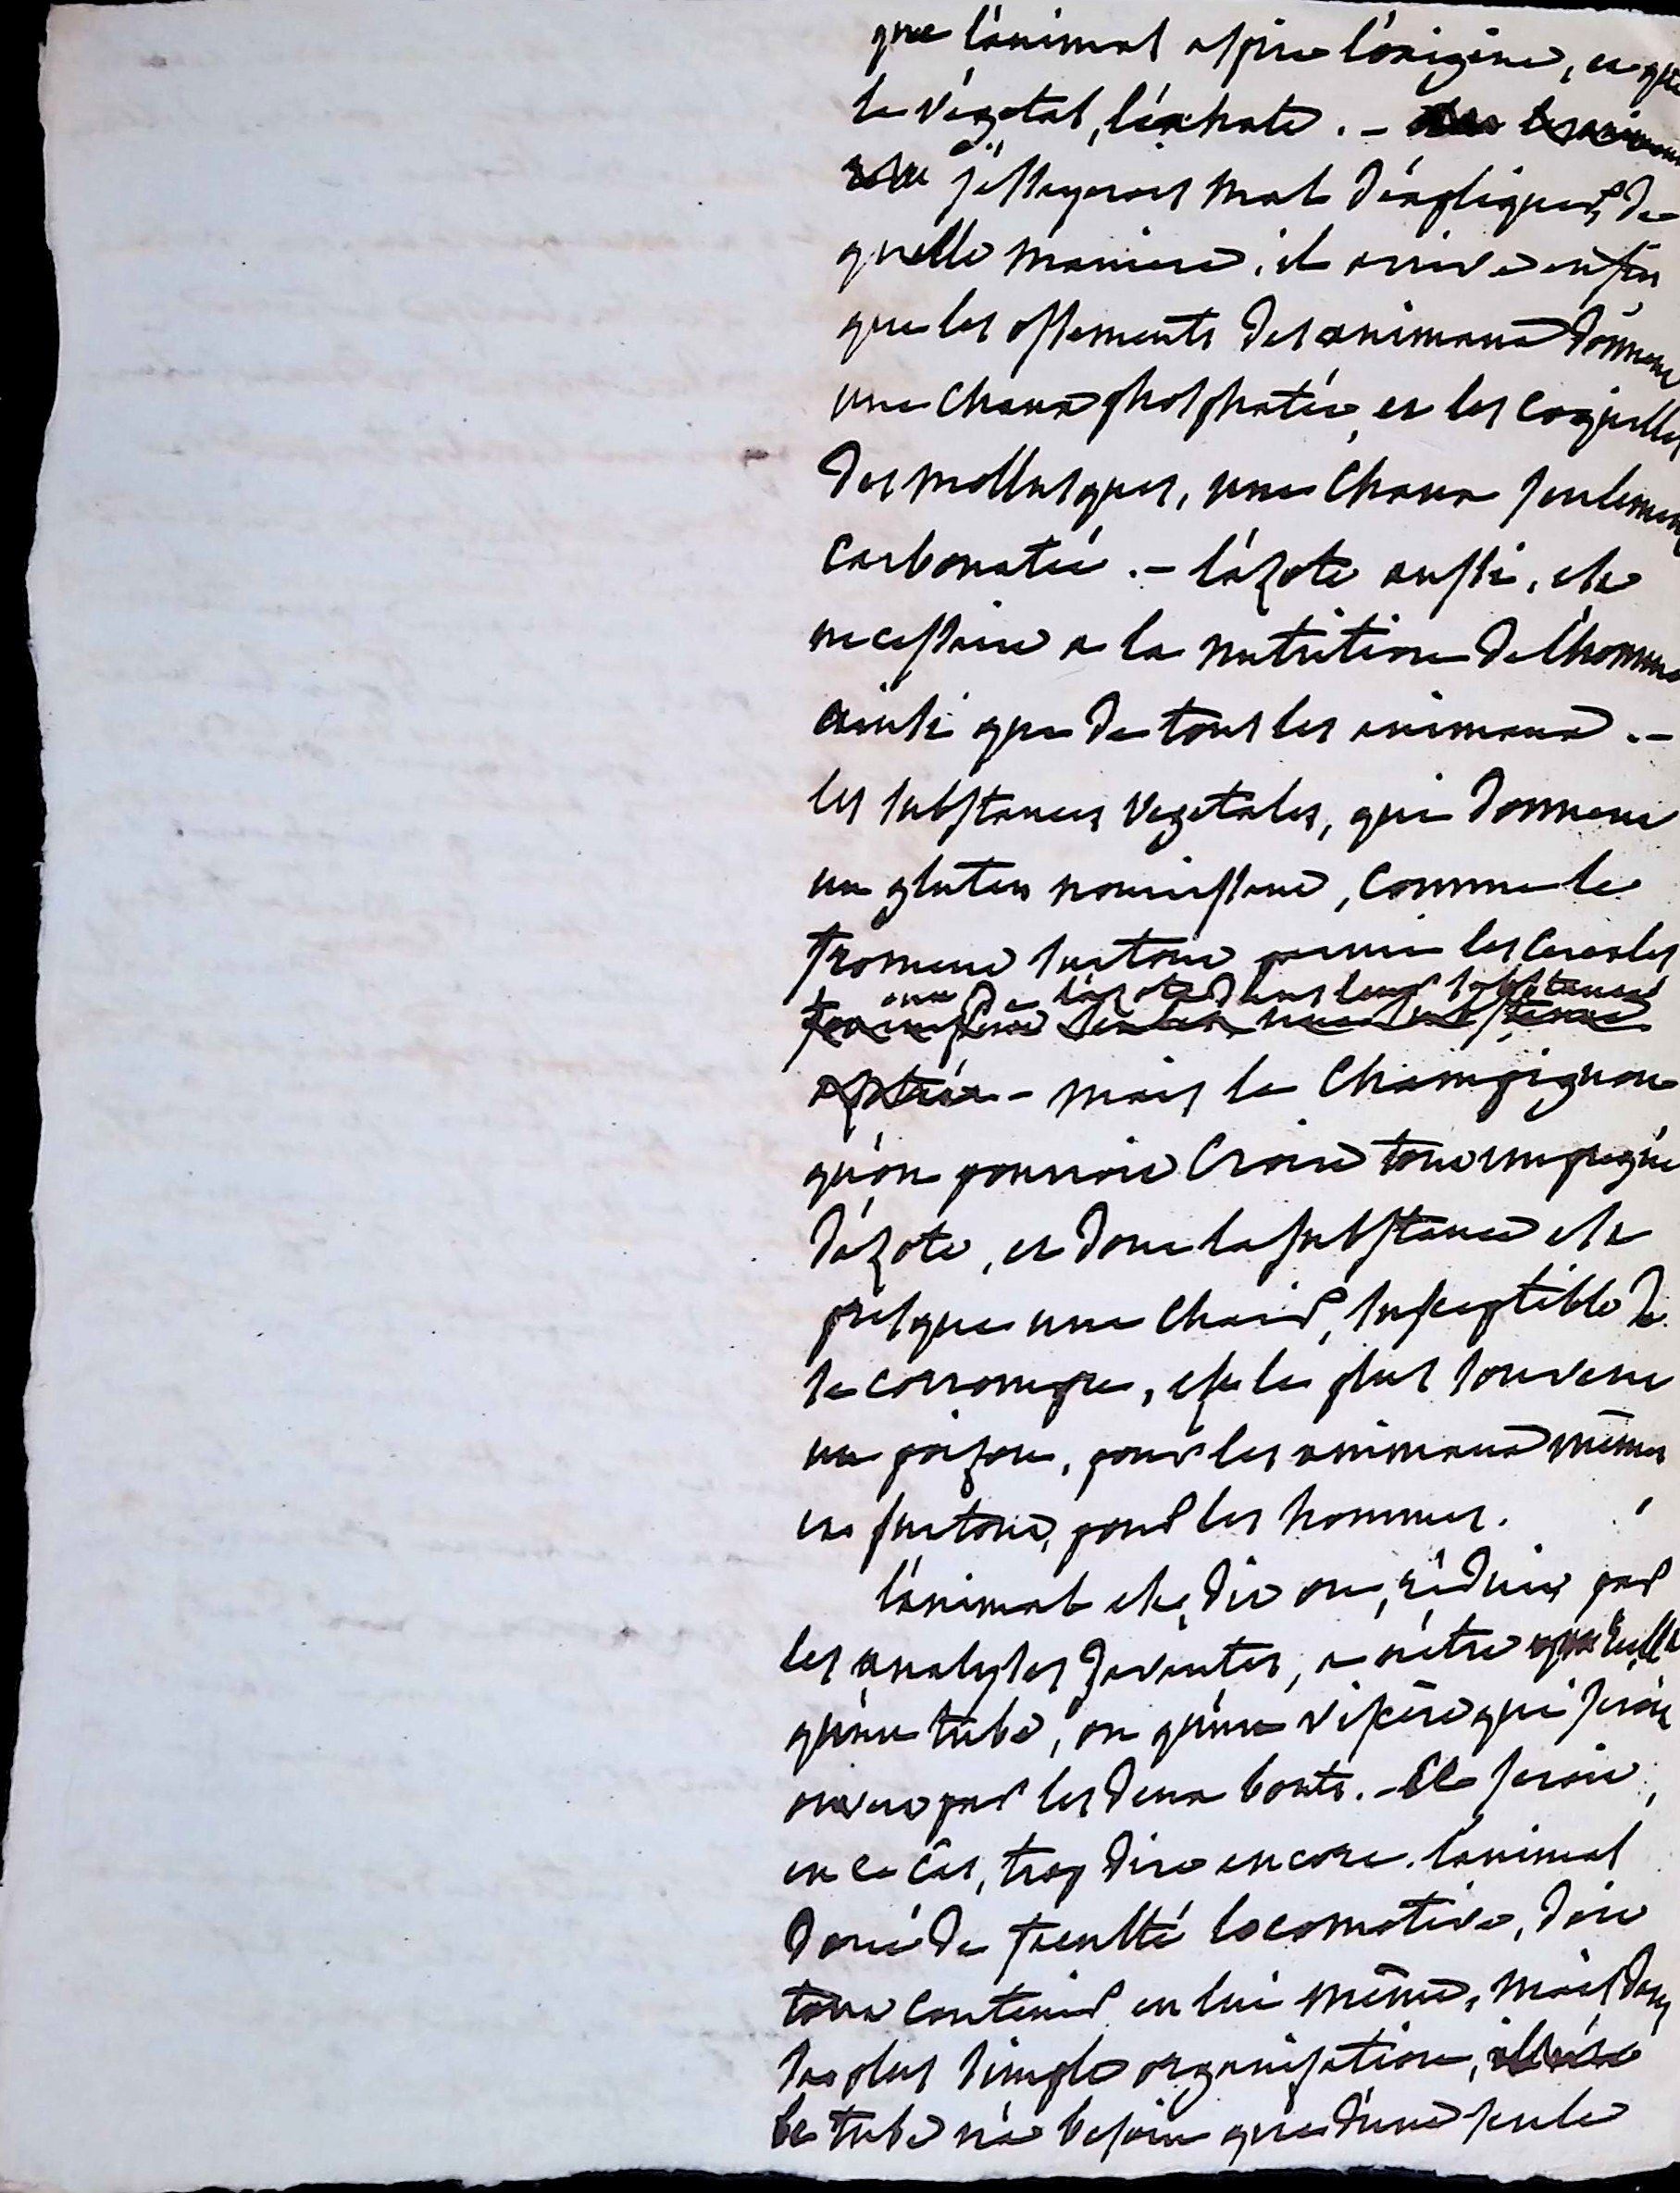 que l'animal aspire l'oxigène, et que
le végétal, l'exhale. -
j'essayerois mal d'expliquer, de
quelle maniere, il arrive enfin
que les ossements des animaux donnent
une chaux phosphatée, et les coquilles
des mollusques, une chaux seulement
carbonatée. - l'azote aussi, est
necessaire a la nutrition de l'homme
ainsi que de tous les animaux. -
les substances vegetales, qui donnent
un gluten nourrissant, comme le
froment surtout parmi les cereales
ont de l'azote dans leur substance
- mais le champignon
qu'on pourroit croire tout impregné
d'azote, et dont la substance est
presque une chair, susceptible de
se corrompre, est le plus souvent
un poison, pour les animaux mêmes
et surtout, pour les hommes.
l'animal est, dit on, réduit par
les analyses savantes, a n'être
qu'un tube, ou qu'un viscère qui seroit
ouvert par les deux bouts. - Ce seroit,
en ce cas, trop dire encore. l'animal
doué de faculté locomotive, doit
tout contenir en lui même, mais dans
sa plus simple organisation,
le tube n'a besoin que d'une seule